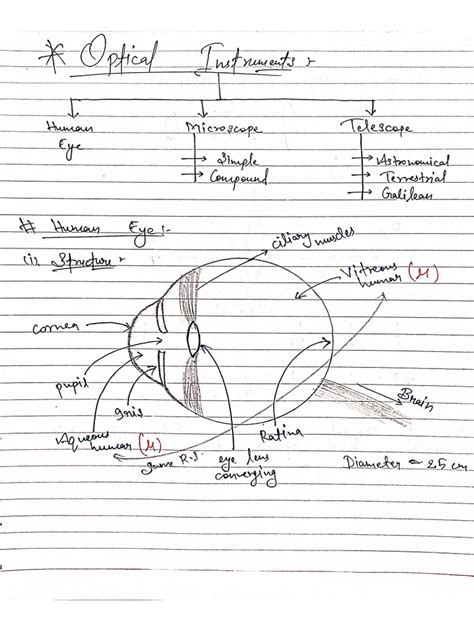 * Optical Instruments :-
Human Eye
Microscope
→ Simple
→ Compound
Telescope
→ Astronomical
→ Terrestrial
→ Galilean
# Human Eye :-
(i). Structure :-
ciliary muscles
Vitreous humar (μ)
cornea
pupil
Iris
Aqueous humar (μ)
same R.I.
eye lens converging
Ratina
Brain
Diameter ≈ 2.5 cm